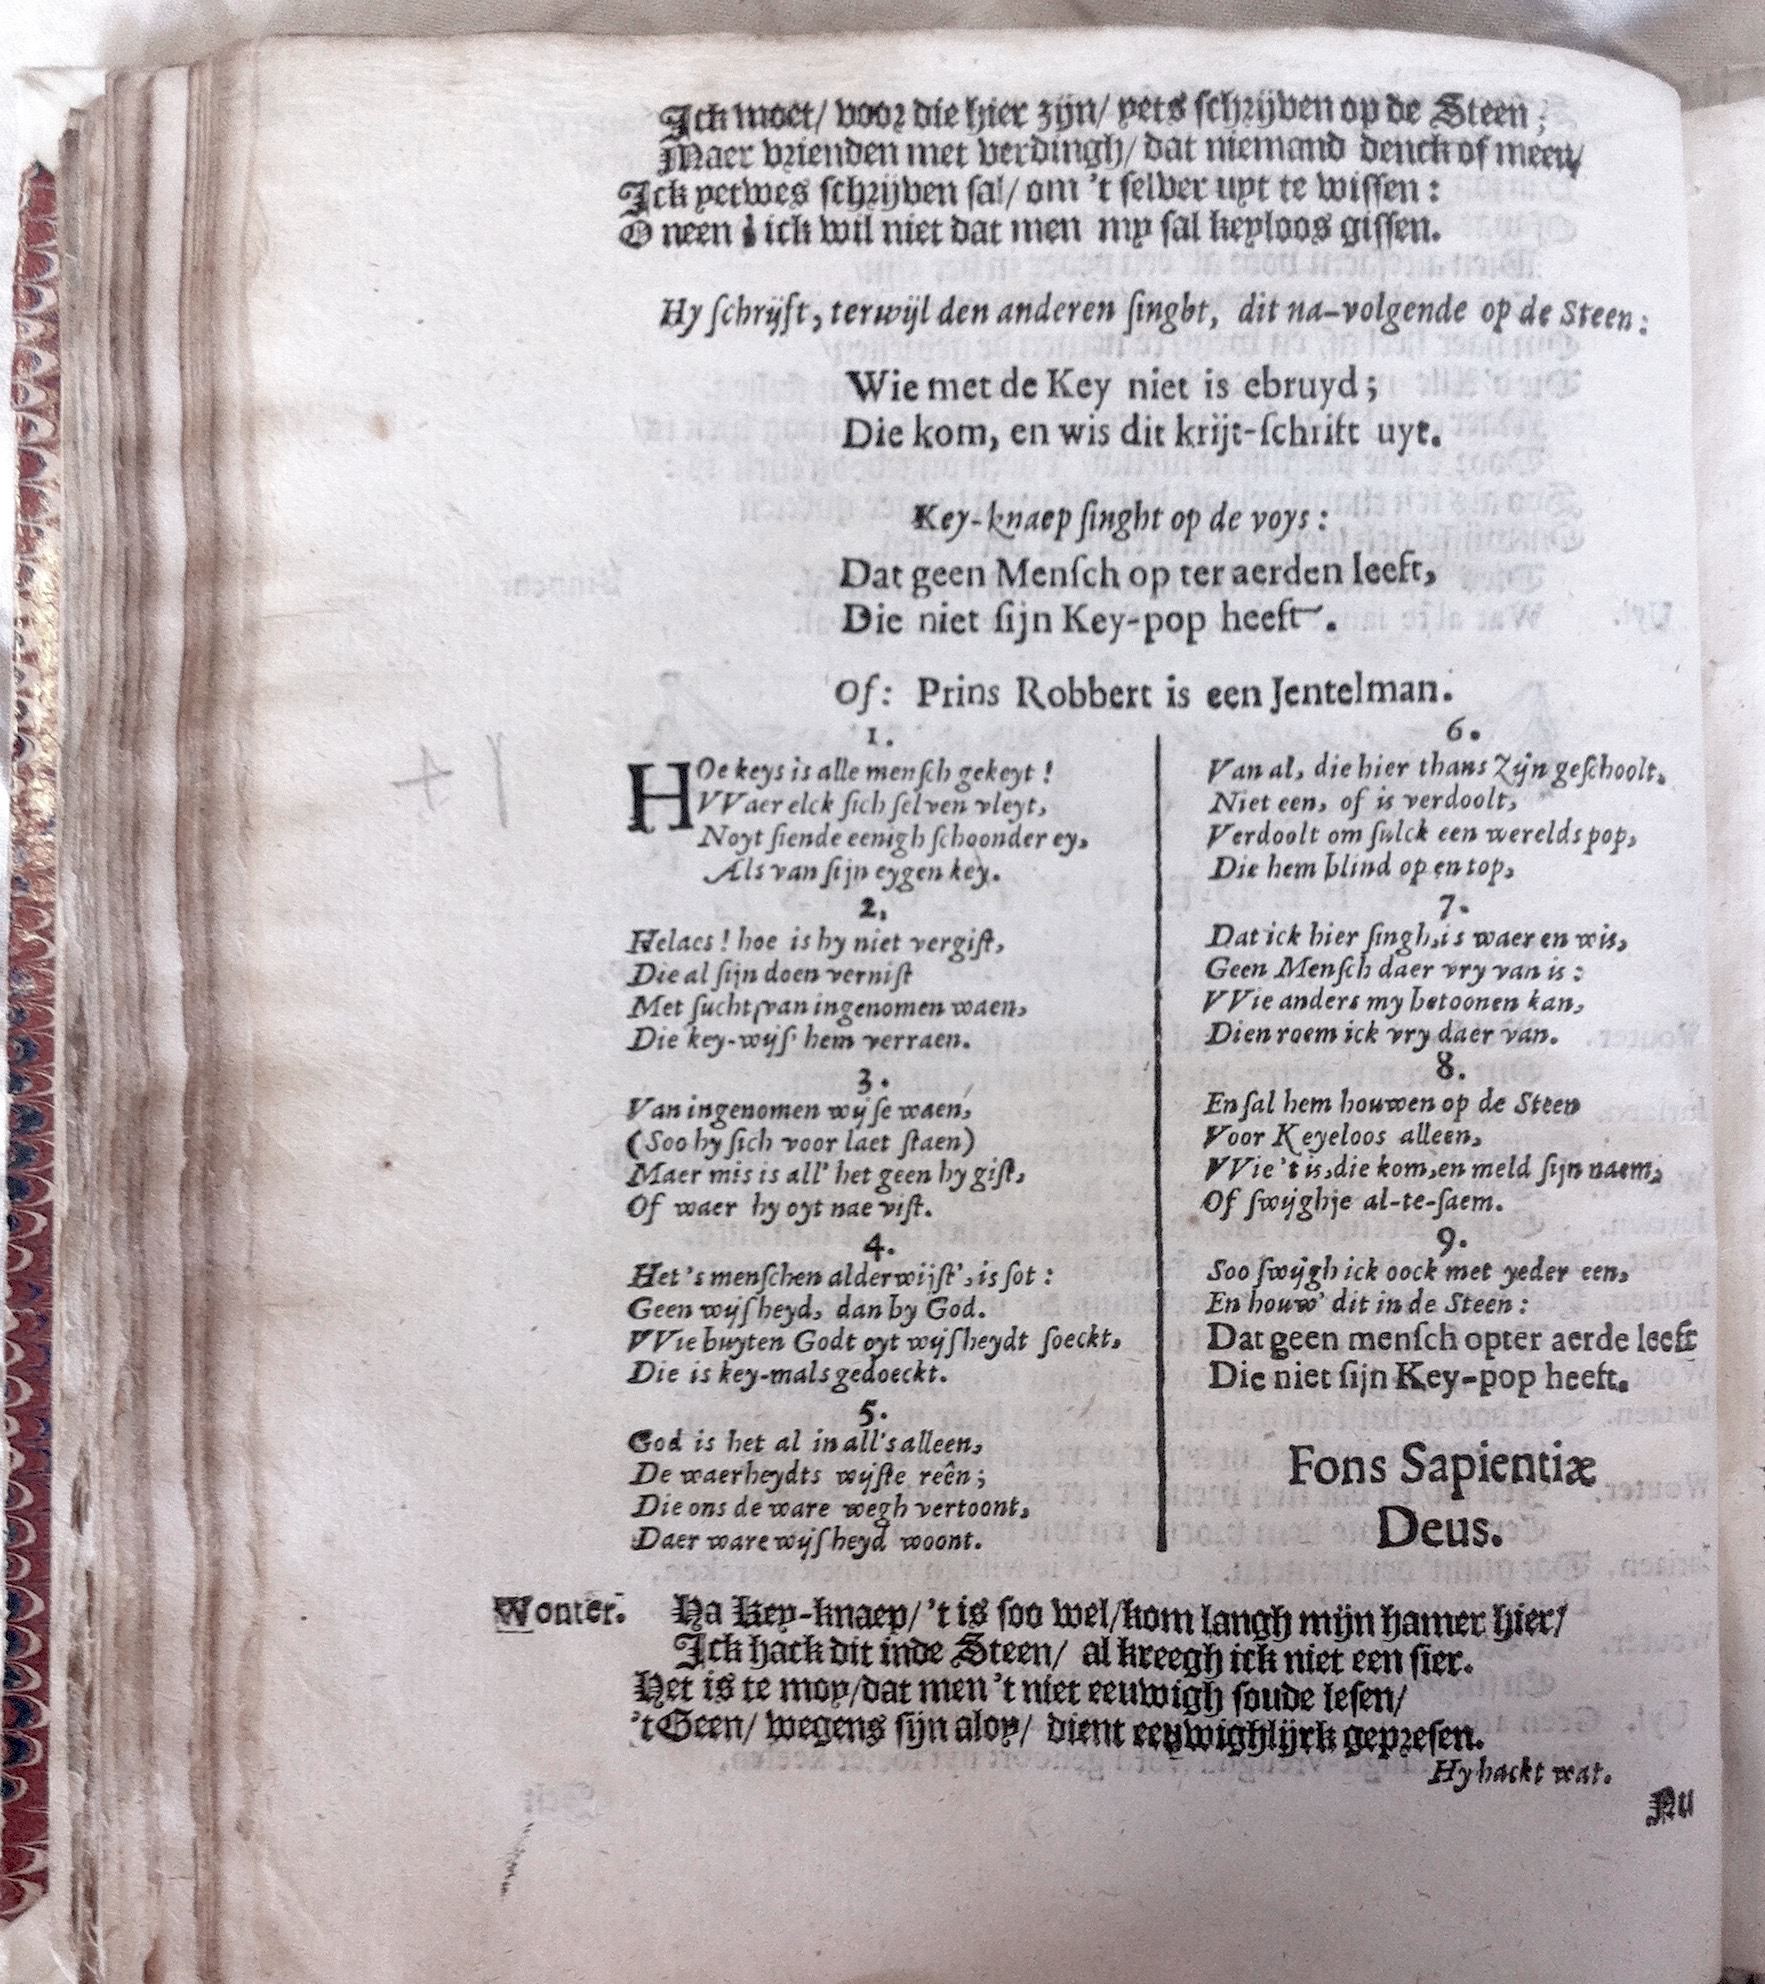 Ick moet/ voor die hier zijn/ yets ſchrijven op de Steen;
Maer vrienden met verdingh/ dat niemand denck of meen/
Ick yetwes ſchrijven ſal/ om 't ſelver uyt te wiſſen:
O neen! ick wil niet dat men my ſal keyloos giſſen.
Hy ſchrijft, terwijl den anderen ſinght, dit na-volgende op de Steen:
Wie met de Key niet is ebruyd;
Die kom, en wis dit krijt-ſchrift uyt.
Key-knaep ſinght op de voys:
Dat geen Menſch op ter aerden leeft,
Die niet ſijn Key-pop heeft.
Of: Prins Robbert is een Jentelman.
1.
HOe keys is alle menſch gekeyt!
VVaer elck ſich ſelven vleyt,
Noyt ſiende eenigh ſchoonder ey,
Als van ſijn eygen key.
2.
Helaes! hoe is hy niet vergiſt,
Die al ſijn doen verniſt
Met ſucht, van ingenomen waen,
Die key-wijſ' hem verraen.
3.
Van ingenomen wijſe waen,
(Soo hy ſich voor laet ſtaen)
Maer mis is all' het geen hy giſt,
Of waer hy oyt nae viſt.
4.
Het 's menſchen alderwijſt', is ſot:
Geen wijſheyd, dan by God.
VVie buyten Godt oyt wijſheydt ſoeckt,
Die is key-mals gedoeckt.
5.
God is het al in all's alleen,
De waerheydts wijſte reên;
Die ons de ware wegh vertoont,
Daer ware wijſheyd woont.
6.
Van al, die hier thans zijn geſchoolt,
Niet een, of is verdoolt,
Verdoolt om ſulck een werelds pop,
Die hem blind op en top,
7.
Dat ick hier ſingh, is waer en wis,
Geen Menſch daer vry van is:
VVie anders my betoonen kan,
Dien roem ick vry daer van.
8.
En ſal hem houwen op de Steen
Voor Keyeloos alleen,
VVie 't is, die kom, en meld ſijn naem,
Of ſwijghje al-te-ſaem.
9.
Soo ſwijgh ick oock met yeder een,
En houw' dit in de Steen:
Dat geen menſch opter aerde leeft
Die niet ſijn Key-pop heeft.
Fons Sapientiæ
Deus.
Wouter. Ha Key-knaep/ 't is ſoo wel/ kom langh mijn hamer hier/
Ick hack dit inde Steen/ al kreegh ick niet een ſier.
Het is te moy/ dat men 't niet eeuwigh ſoude leſen/
't Geen/ wegens ſijn aloy/ dient eeuwighlijck gepreſen.
Hy hackt wat.
Nu